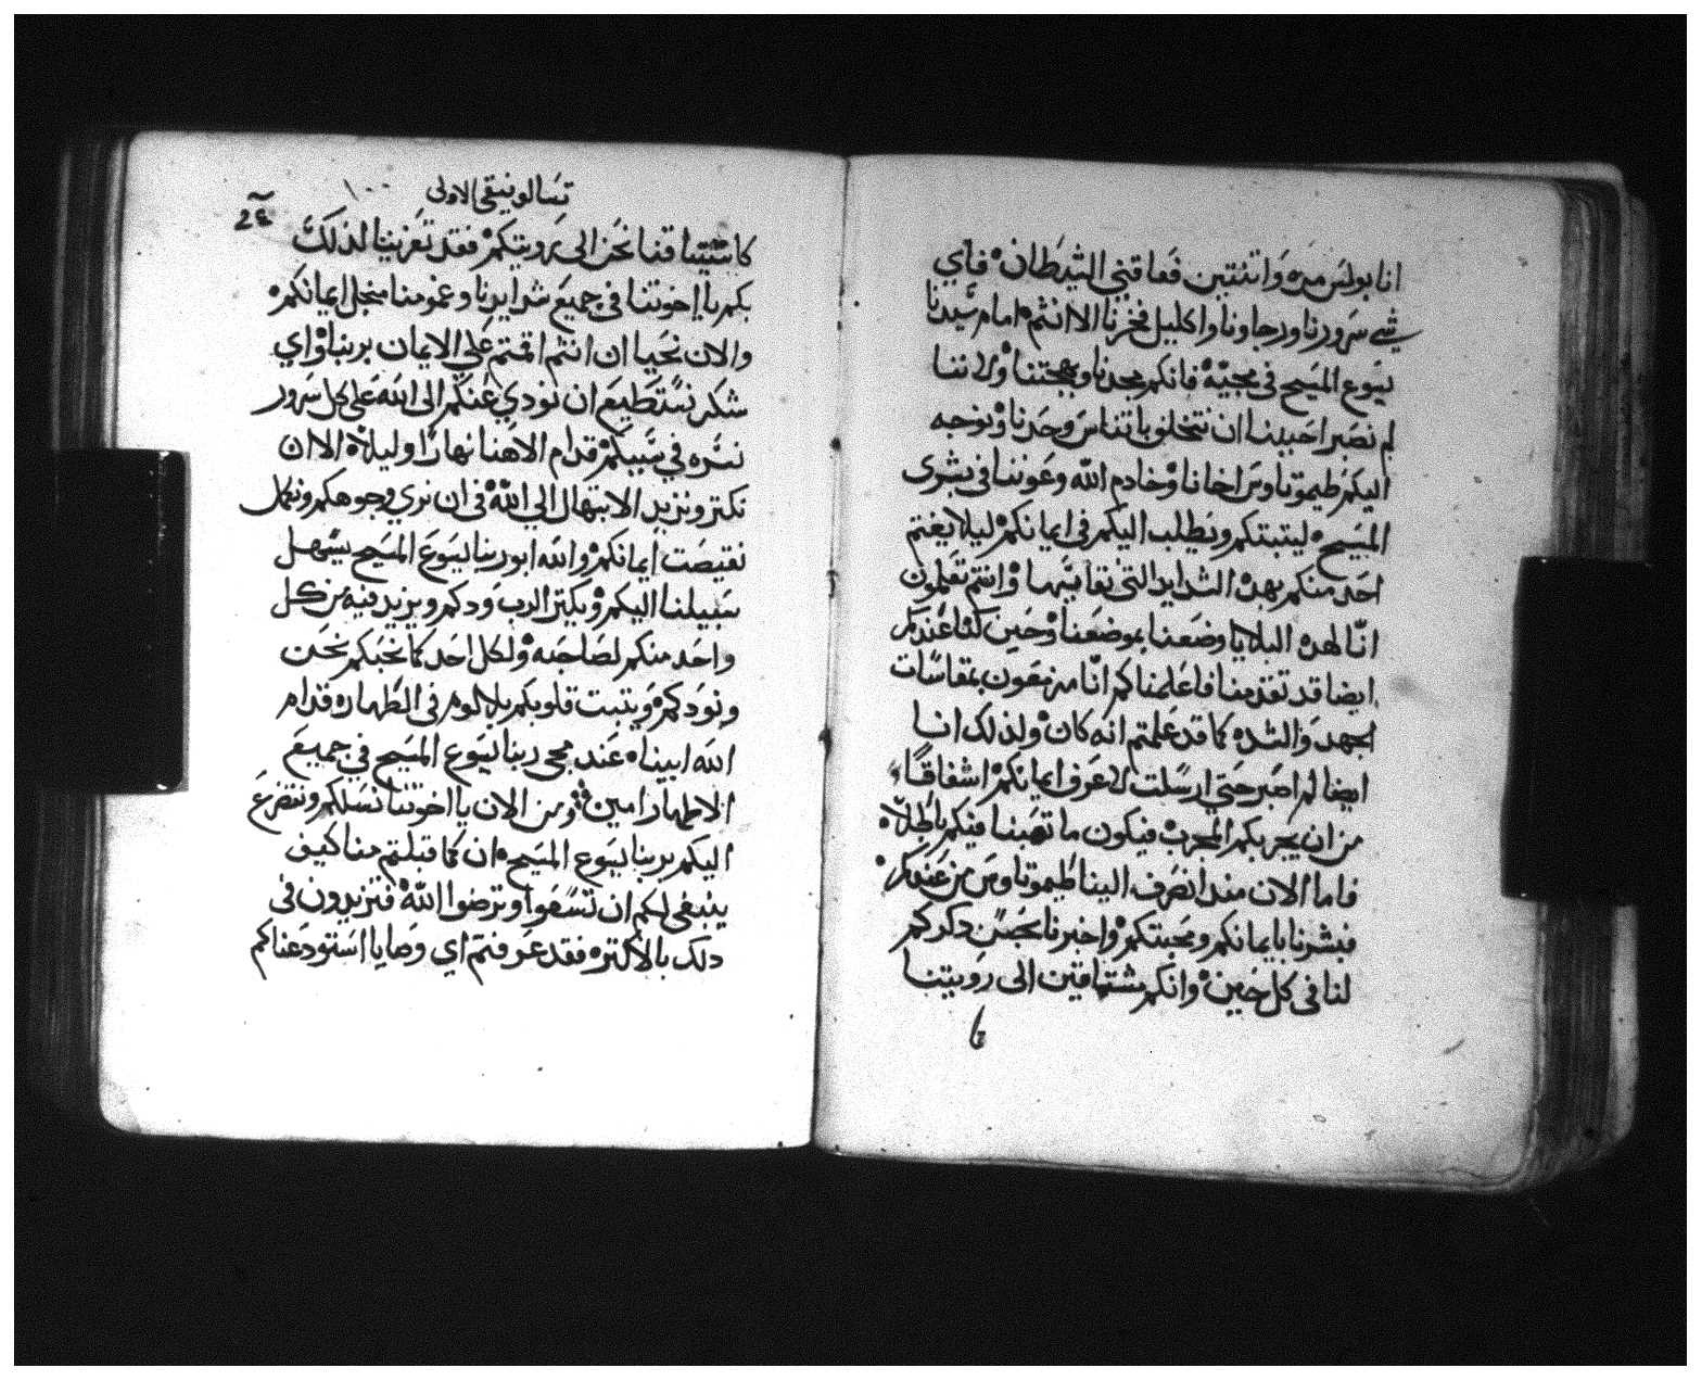 انا بولس مره واتنتين فعاقني الشيطان فاي
شي سرورنا ورجاونا واكليل فخرنا الا انتم امام سيدنا
يسوع المسيح في مجيه فانكم مجدنا وبهجتنا ولاننا
لم نصبر احببنا ان نتخلف باتناس وحدنا ونوجه
اليكم طيموتاوس اخانا وخادم الله وعوننا في بشرى
المسيح ليتبتكم ويطلب اليكم في ايمانكم ليلا يغتم
احد منكم بهده الشدايد التي نقاسيها وانتم تعلمون
انا لهده البلايا وضعنا بموضعنا وحين كنا عندكم
ايضا قد تقدمنا فاعلمناكم انا مزمعون بمقاسات
الجهد والشده كما قد علمتم انه كان ولذلك انا
ايضا لم اصبر حتي ارسلت لاعرف ايمانكم اشفاقا
من ان يجربكم المجرب فيكون ما تعبنا فيكم باطلا
فاما الان مند انصرف الينا طيموتاوس من عندكم
فبشرنا بايمانكم ومحبتكم واخبرنا بحسن دكركم
لنا في كل حين وانكم مشتاقين الى رويتنا
تسالونيقي الاولى ١٠٠
كاشتياقنا نحن الى رويتكم فقد تعزينا لذلك
بكم يا اخوتنا في جميع شدايدنا وغمومنا منجل ايمانكم
والان نحيا ان انتم اقمتم علي الايمان بربنا واي
شكر نستطيع ان نودي عنكم الى الله على كل سرور
نسره في سببكم قدام الاهنا نهارا وليلا الا ان
نكتر ونزيد الابتهال الي الله في ان نري وجوهكم ونكمل
نقيصت ايمانكم والله ابو ربنا يسوع المسيح يسهل
سبيلنا اليكم ويكتر الرب ودكم ويزيد فيه من كل
واحد منكم لصاحبه ولكل احد كما نحبكم نحن
ونودكم ويتبت قلوبكم بلا لوم في الطهاره قدام
الله ابينا عند مجى ربنا يسوع المسيح في جميع
الاطهار امين ومن الان يا اخوتنا نسلكم ونتضرع
اليكم بربنا يسوع المسيح ان كما قبلتم منا كيف
ينبغي لكم ان تسعوا وترضوا الله فتزيدون في
دلك بالاكتره فقد عرفتم اي وصايا استودعناكم